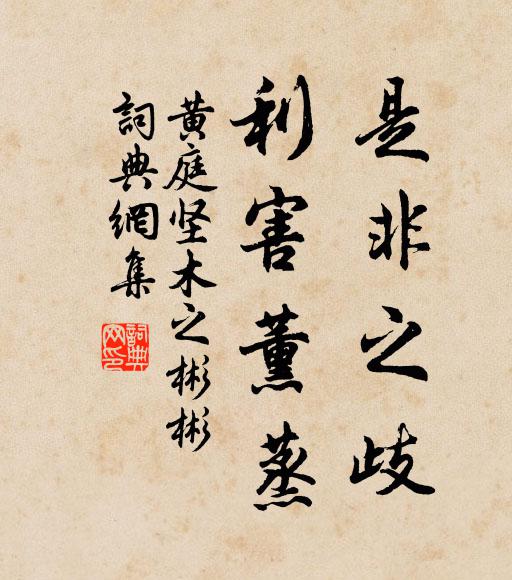 是非之歧
利害薰蒸
黄庭坚木之彬彬
詞典網集
詞典网印